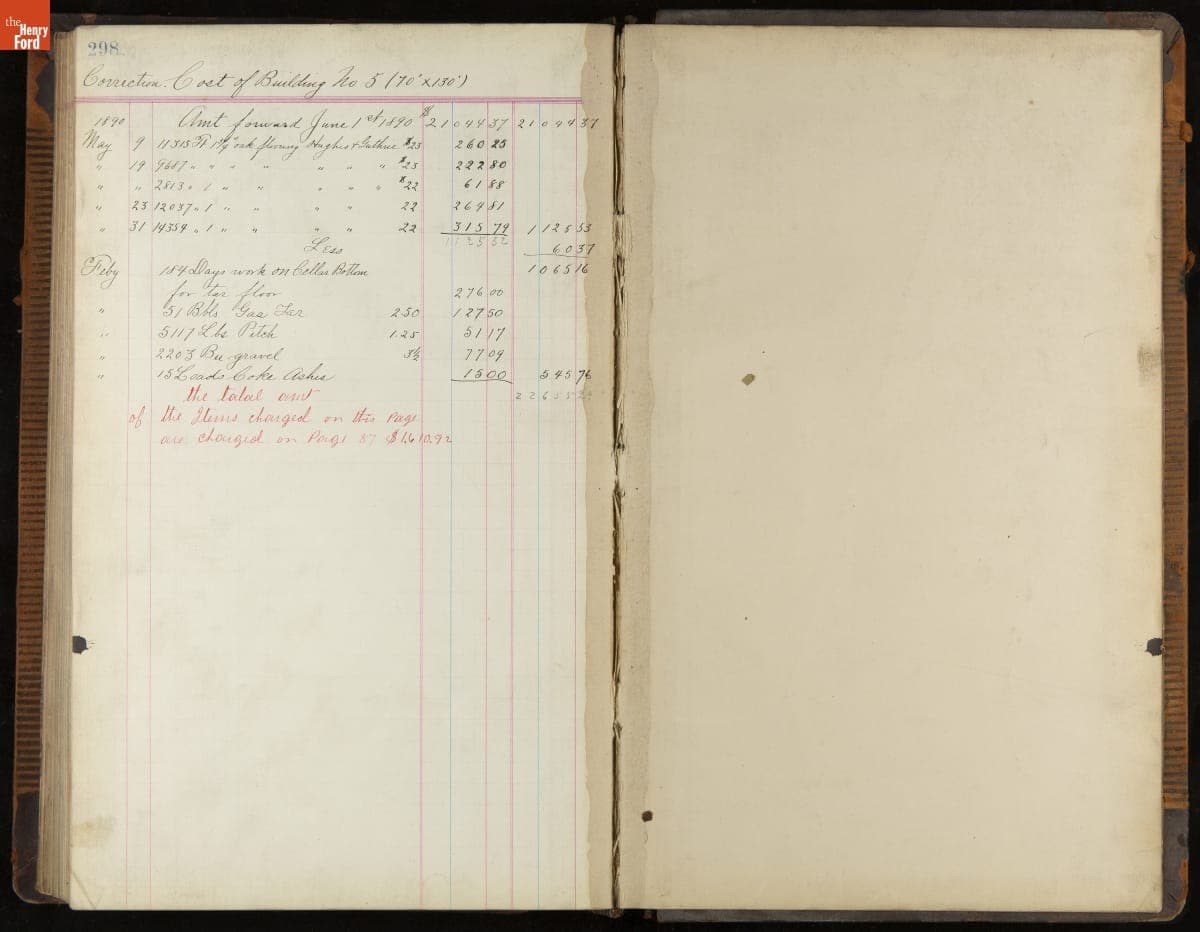 the
Henry
Ford
298
Correction. Cost of Building No 5 (70' x 130')
1890 Amt forward June 1st 1890 $21044 37 21044 37
May 9 11315 Ft oak flooring Hughes & Guthrie $23 260 25
" 19 9687 " " " " " " " $23 222 80
" " 2813 " 1 " " " " " $22 61 88
" 23 12037 " 1 " " " " 22 264 81
" 31 14354 " 1 " " " " 22 315 79 1125 53
1125 52
Less 60 37
1065 16
Feby 184 Days work on Cellar Bottom
for tar floor 276 00
" 51 Bbls Gas Tar 2.50 127 50
" 5117 Lbs Pitch 1.25 51 17
" 2203 Bu gravel 3½ 77 09
" 15 Loads Coke Ashes 15 00 545 76
22655 29
the total amt
of the Items charged on this Page
are charged on Page 87 $1,610.92